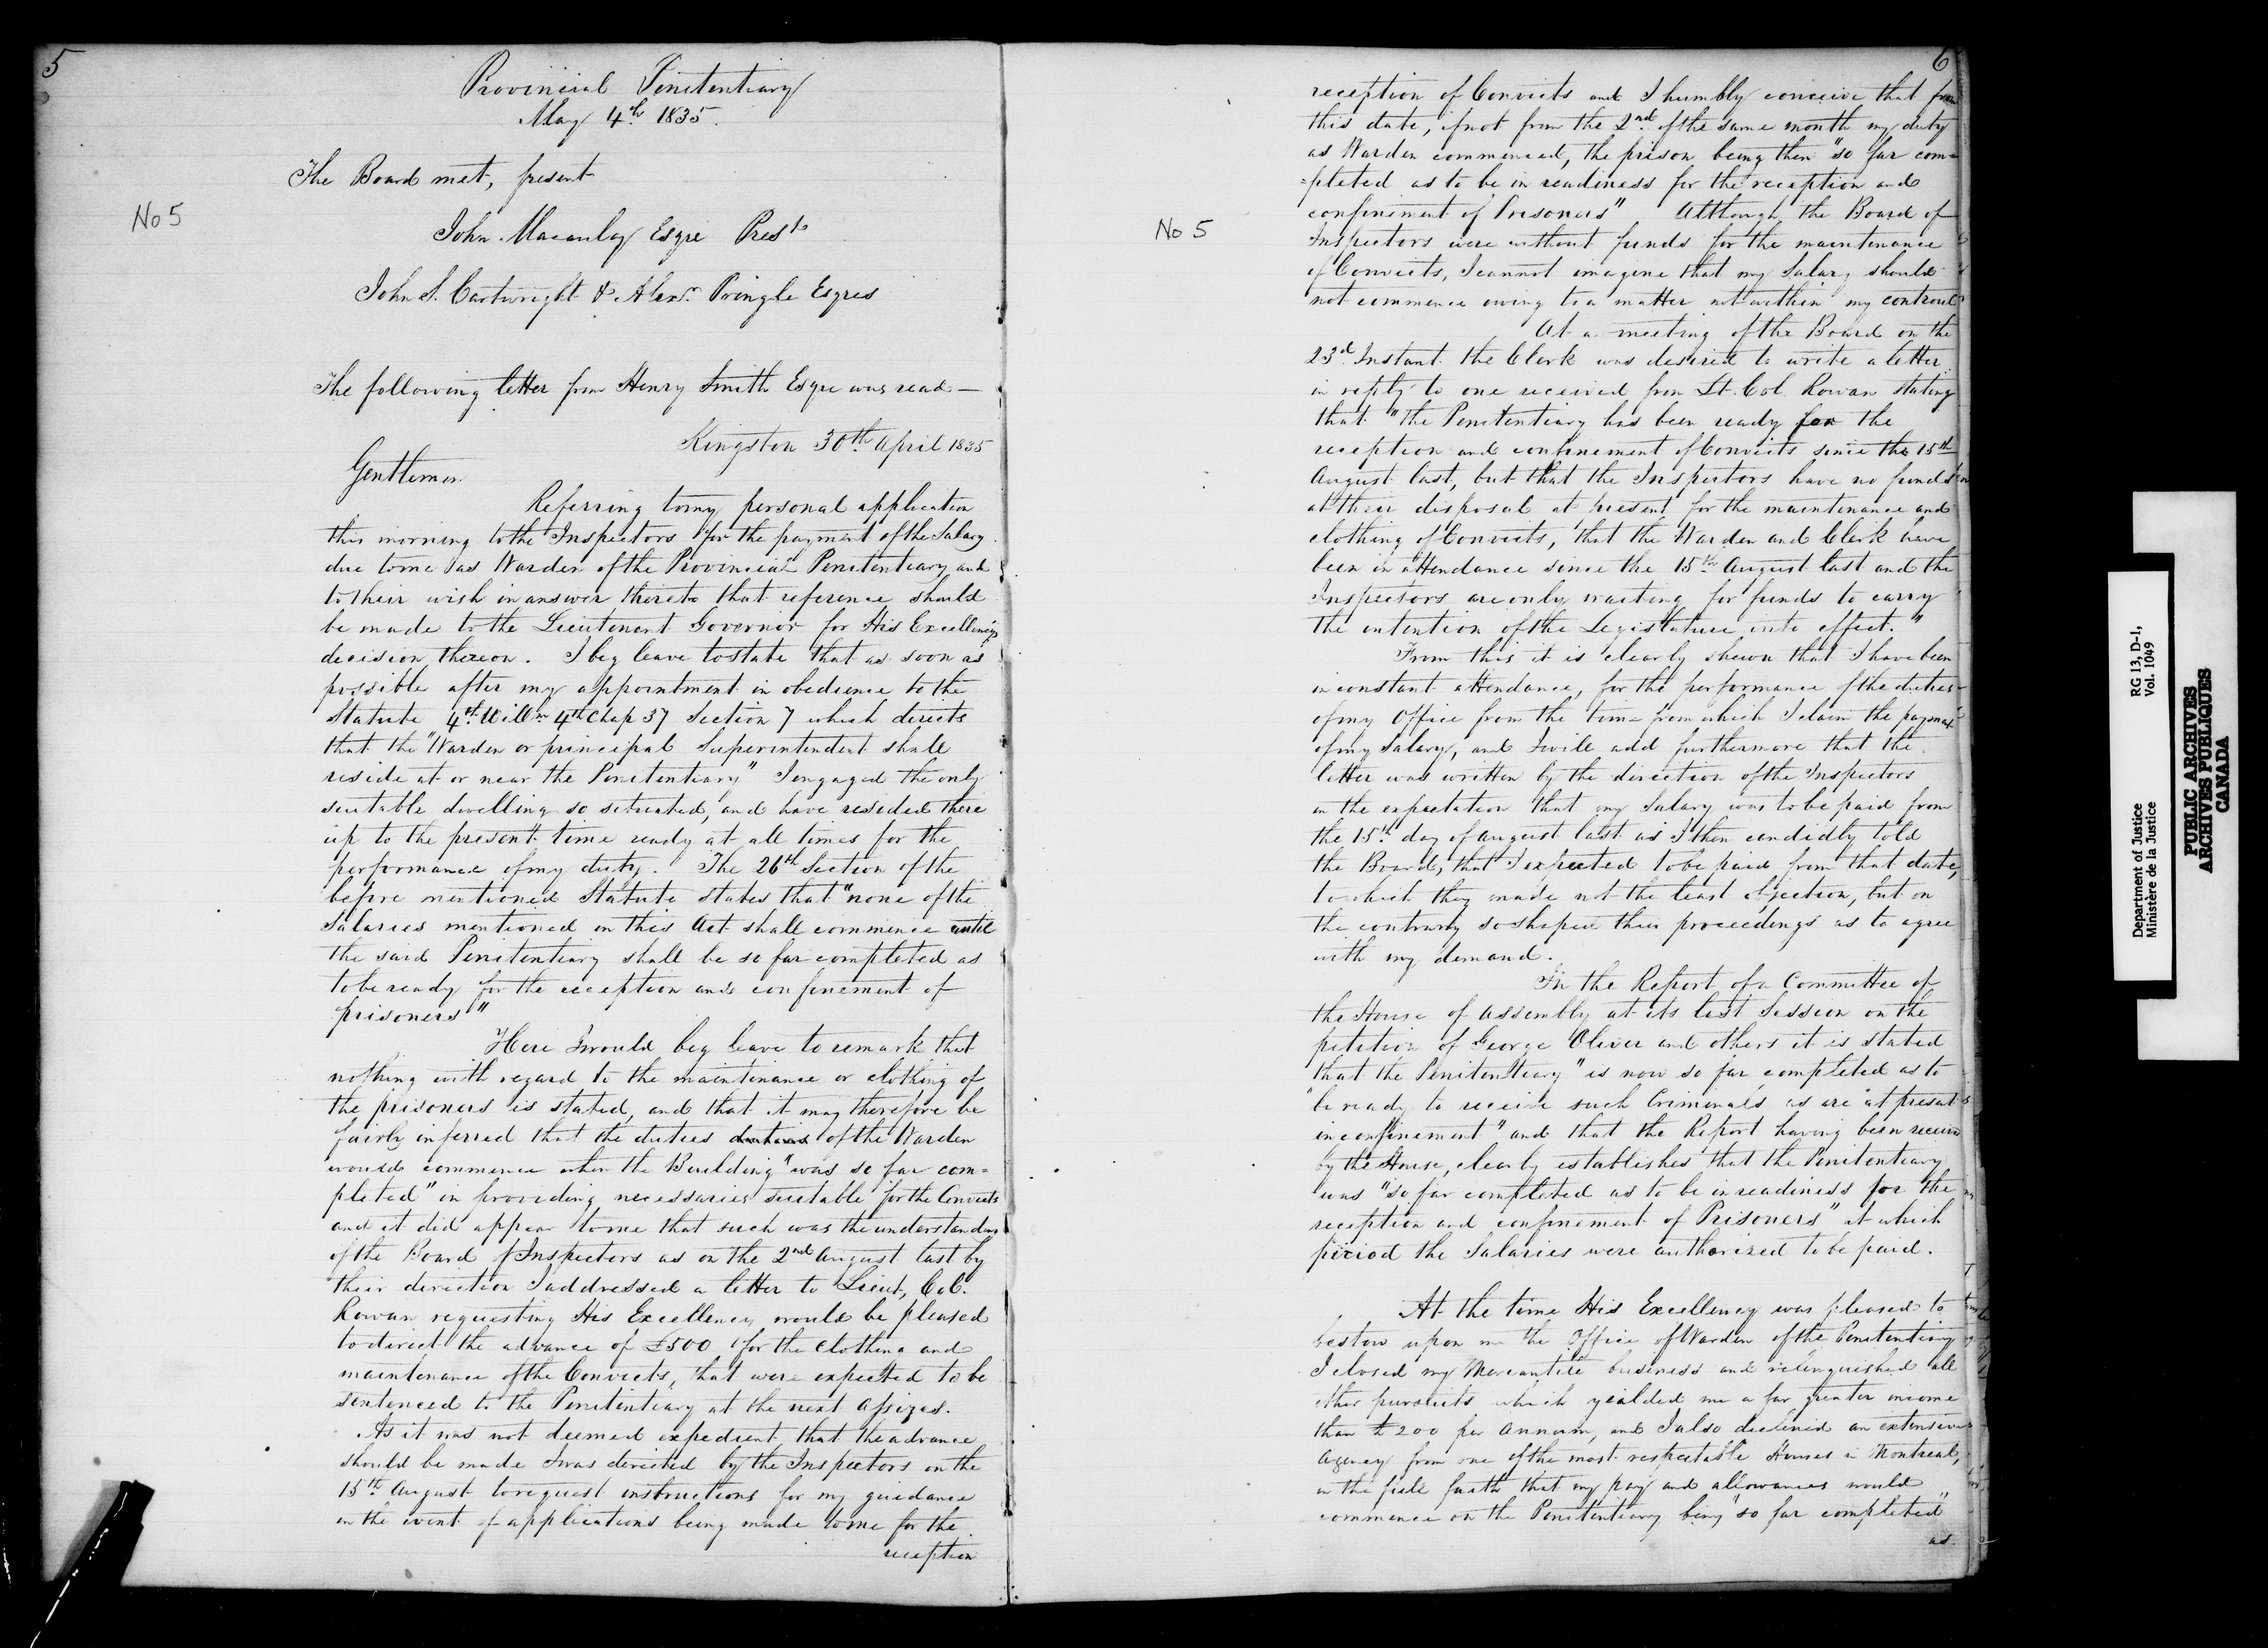 5
Provincial Penitentiary
May 4th 1835.
The Board met, present
No 5
John Macaulay Esqre Prest
John S. Cartwright & Alexr. Pringle Esqres
The following letter from Henry Smith Esqre was read—
Kingston 30th April 1835
Gentlemen
Referring to my personal application
this morning to the Inspectors for the payment of the Salary
due to me as Warden of the Provincial Penitentiary and
to their wish in answer thereto that reference should
be made to the Lieutenant Governor for His Excellency's
decision thereon. I beg leave to state that as soon as
possible after my appointment in obedience to the
Statute 4th Willm 4th Chap 37 Section 7 which directs
that the "Warden or principal Superintendent shall
reside at or near the Penitentiary" I engaged the only
suitable dwelling so situated, and have resided there
up to the present time ready at all times for the
performance of my duty. The 26th Section of the
before mentioned Statute states that "none of the
Salaries mentioned in this Act shall commence until
the said Penitentiary shall be so far completed as
to be ready for the reception and confinement of
prisoners"
Here I would beg leave to remark that
nothing with regard to the maintinance or clothing of
the prisoners is stated, and that it may therefore be
fairly inferred that the duties duties of the Warden
would commence when the Building "was so far com=
pleted" in providing necessaries suitable for the Convicts
and it did appear to me that such was the understanding
of the Board of Inspectors as on the 2nd August last by
their direction I addressed a letter to Lieut, Col.
Rowan requesting His Excellency would be pleased
to direct the advance of £500 for the clothing and
maintenance of the Convicts, that were expected to be
sentenced to the Penitentiary at the next Assizes.
As it was not deemed expedient that the advance
should be made I was directed by the Inspectors on the
15th August to request instructions for my guidance
in the event of applications being made to me for the
reception
6
reception of Convicts and I humbly conceive that from
this date, if not from the 2nd of the same month my duty
as Warden commenced, the prison being then "so far com=
=pleted as to be in readiness for the reception and
confinement of Prisoners" Although the Board of
No 5
Inspectors were without funds for the maintenance
of Convicts, I cannot imagine that my Salary should
not commence owing to a matter not within my controul
At a meeting of the Board on the
23d Instant the Clerk was desired to write a letter
in reply to one received from Lt. Col Rowan stating
that "the Penitentiary has been ready for the
reception and confinement of Convicts since the 15th
August last, but that the Inspectors have no funds
at their disposal at present for the maintenance and
clothing of Convicts, that the Warden and Clerk have
been in attendance since the 15th August last and the
Inspectors are only waiting for funds to carry
the intention of the Legislature into effect."
From this it is clearly shewn that I have been
in constant attendance, for the performance of the duties
of my Office from the time from which I claim the payment
of my Salary, and I will add furthermore that the
letter was written by the direction of the Inspectors
in the expectation that my Salary was to be paid from
the 15th day of August last as I then candidly told
the Board, that I expected to be paid from that date,
to which they made not the least objection, but on
the contrary so shaped their proceedings as to agree
with my demand.
In the Report of a Committee of
the House of Assembly at its last Session on the
petition of George Oliver and others it is stated
that the Penitentiary "is now so far completed as to
"be ready to receive such Criminals as are at present
in confinement" and that the Report having been receivd
by the House, clearly establishes that the Penitentiary
was "so far completed as to be in readiness for the
reception and confinement of Prisoners" at which
period the Salaries were authorized to be paid.
At the time His Excellency was pleased to
bestow upon me the Office of Warden of the Penitentiary
I closed my Mercantile business and relinquished all
other pursuits which yeilded me a far greater income
than £200 per Annum, and I also declined an extensive
Agency from one of the most respectable Houses in Montreal,
in the full faith that my pay and allowances would
commence on the Penitentiary being "so far completed"
as
Department of Justice
Ministère de la Justice
RG 13, D-1,
Vol. 1049
PUBLIC ARCHIVES
ARCHIVES PUBLIQUES
CANADA